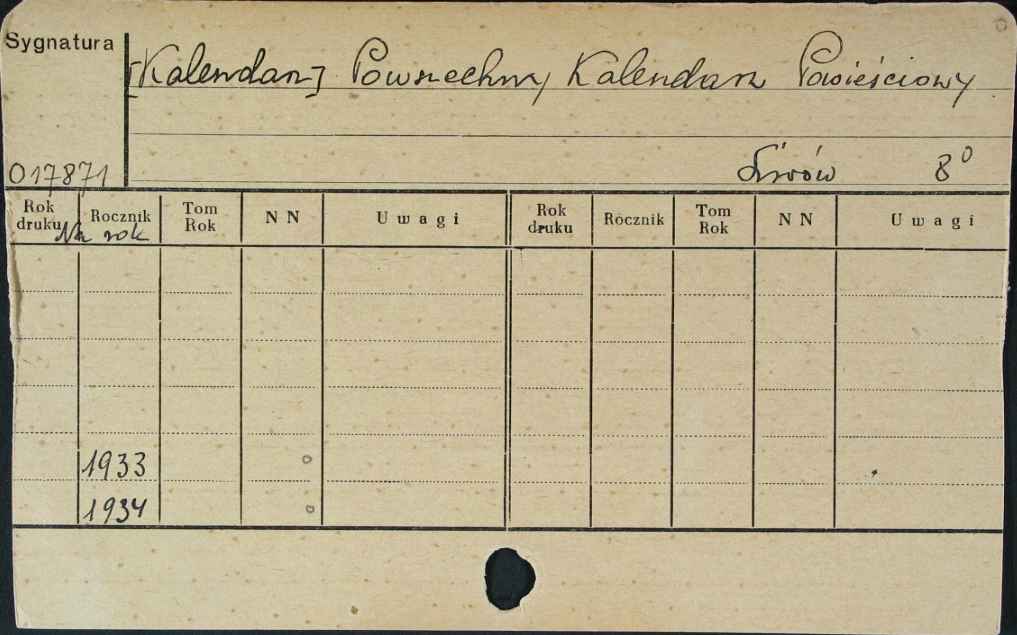 Sygnatura
[Kalendarz] Powszechny Kalendarz Powieściowy
Lwów 8°
017871
Rok druku Rocznik Tom Rok NN Uwagi Rok druku Rocznik Tom Rok NN Uwagi
Na rok
1933 o
1934 o